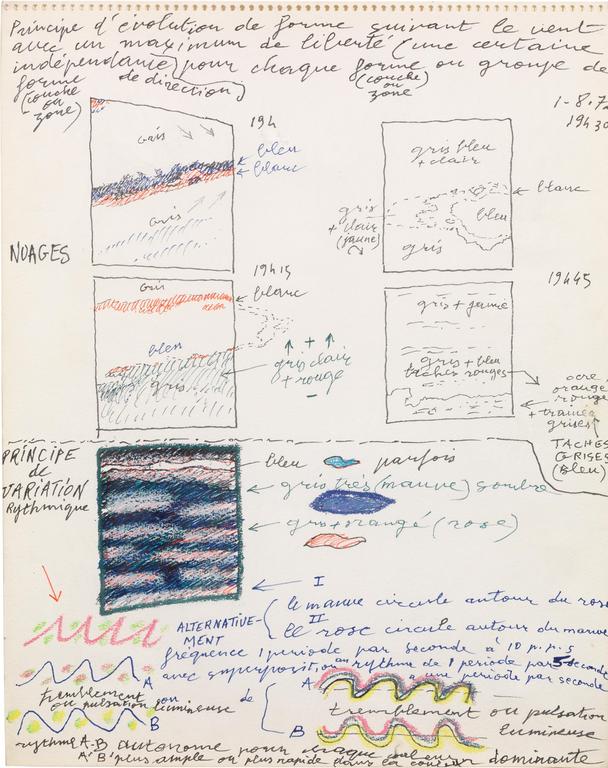 Principe d'évolution de forme suivant le vent
avec un maximum de liberté (une certaine
indépendance) pour chaque forme ou groupe de
forme
(couche
ou
zone)
de direction)
(couche
ou
zone)
1-8-7
19H30
19H
gris
bleu
blanc
gris
gris bleu
+ clair
blanc
bleu
gris
+ clair
(jaune)
gris
NUAGES
19H15
gris
blanc
bleu
gris
+
gris clair
+ rouge
-
19H45
gris + jaune
gris + bleu
taches rouges
ocre
orangé
rouge
+ trainée
grises
TACHES
GRISES
(bleu)
PRINCIPE
de
VARIATION
Rythmique
bleu parfois
gris très (mauve) sombre
gris + orangé (rose)
I
le mauve circule autour du rose
II
le rose circule autour du mauve
ALTERNATIVE-
MENT
fréquence 1 période par seconde à 10 p.p.s
avec superposition
rythme de 1 période par 5 seconde
à une période par seconde
A
tremblement
ou pulsation lumineuse
B
ou
de
A
tremblement ou pulsation
lumineuse
B
rythme A-B autonome pour chaque
A' B' plus ample ou plus rapide dans la couleur dominante